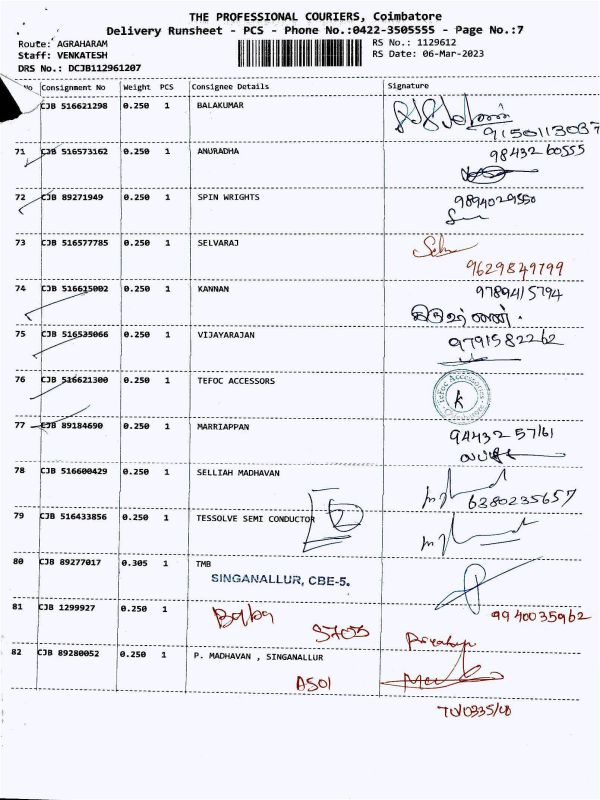 THE PROFESSIONAL COURIERS, Coimbatore
Delivery Runsheet - PCS - Phone No.:0422-3505555 - Page No.:7
Route: AGRAHARAM
RS No.: 1129612
Staff: VENKATESH
RS Date: 06-Mar-2023
DRS No.: DCJB112961207
No Consignment No Weight PCS Consignee Details Signature
CJB 516621298 0.250 1 BALAKUMAR
9150113037
71 CJB 516573162 0.250 1 ANURADHA 9843260555
72 CJB 89271949 0.250 1 SPIN WRIGHTS 9894029550
73 CJB 516577785 0.250 1 SELVARAJ
9629849799
74 CJB 516615002 0.250 1 KANNAN 9789415794
75 CJB 516535066 0.250 1 VIJAYARAJAN 9791582262
76 CJB 516621300 0.250 1 TEFOC ACCESSORS
Tefoc Accessories
77 CJB 89184690 0.250 1 MARRIAPPAN
94432 57161
78 CJB 516600429 0.250 1 SELLIAH MADHAVAN
6380235657
79 CJB 516433856 0.250 1 TESSOLVE SEMI CONDUCTOR
80 CJB 89277017 0.305 1 TMB
SINGANALLUR, CBE-5.
81 CJB 1299927 0.250 1 9940035962
82 CJB 89280052 0.250 1 P. MADHAVAN , SINGANALLUR